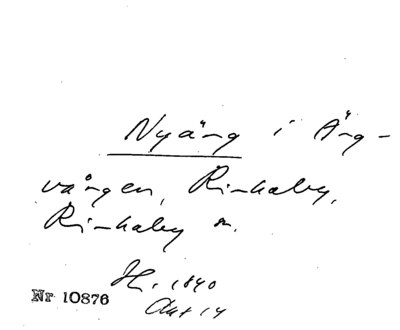 Nyäng i Äng-
vången, Rinkaby,
Rinkaby sn.
H. 1840
Akt 14
Nr 10876